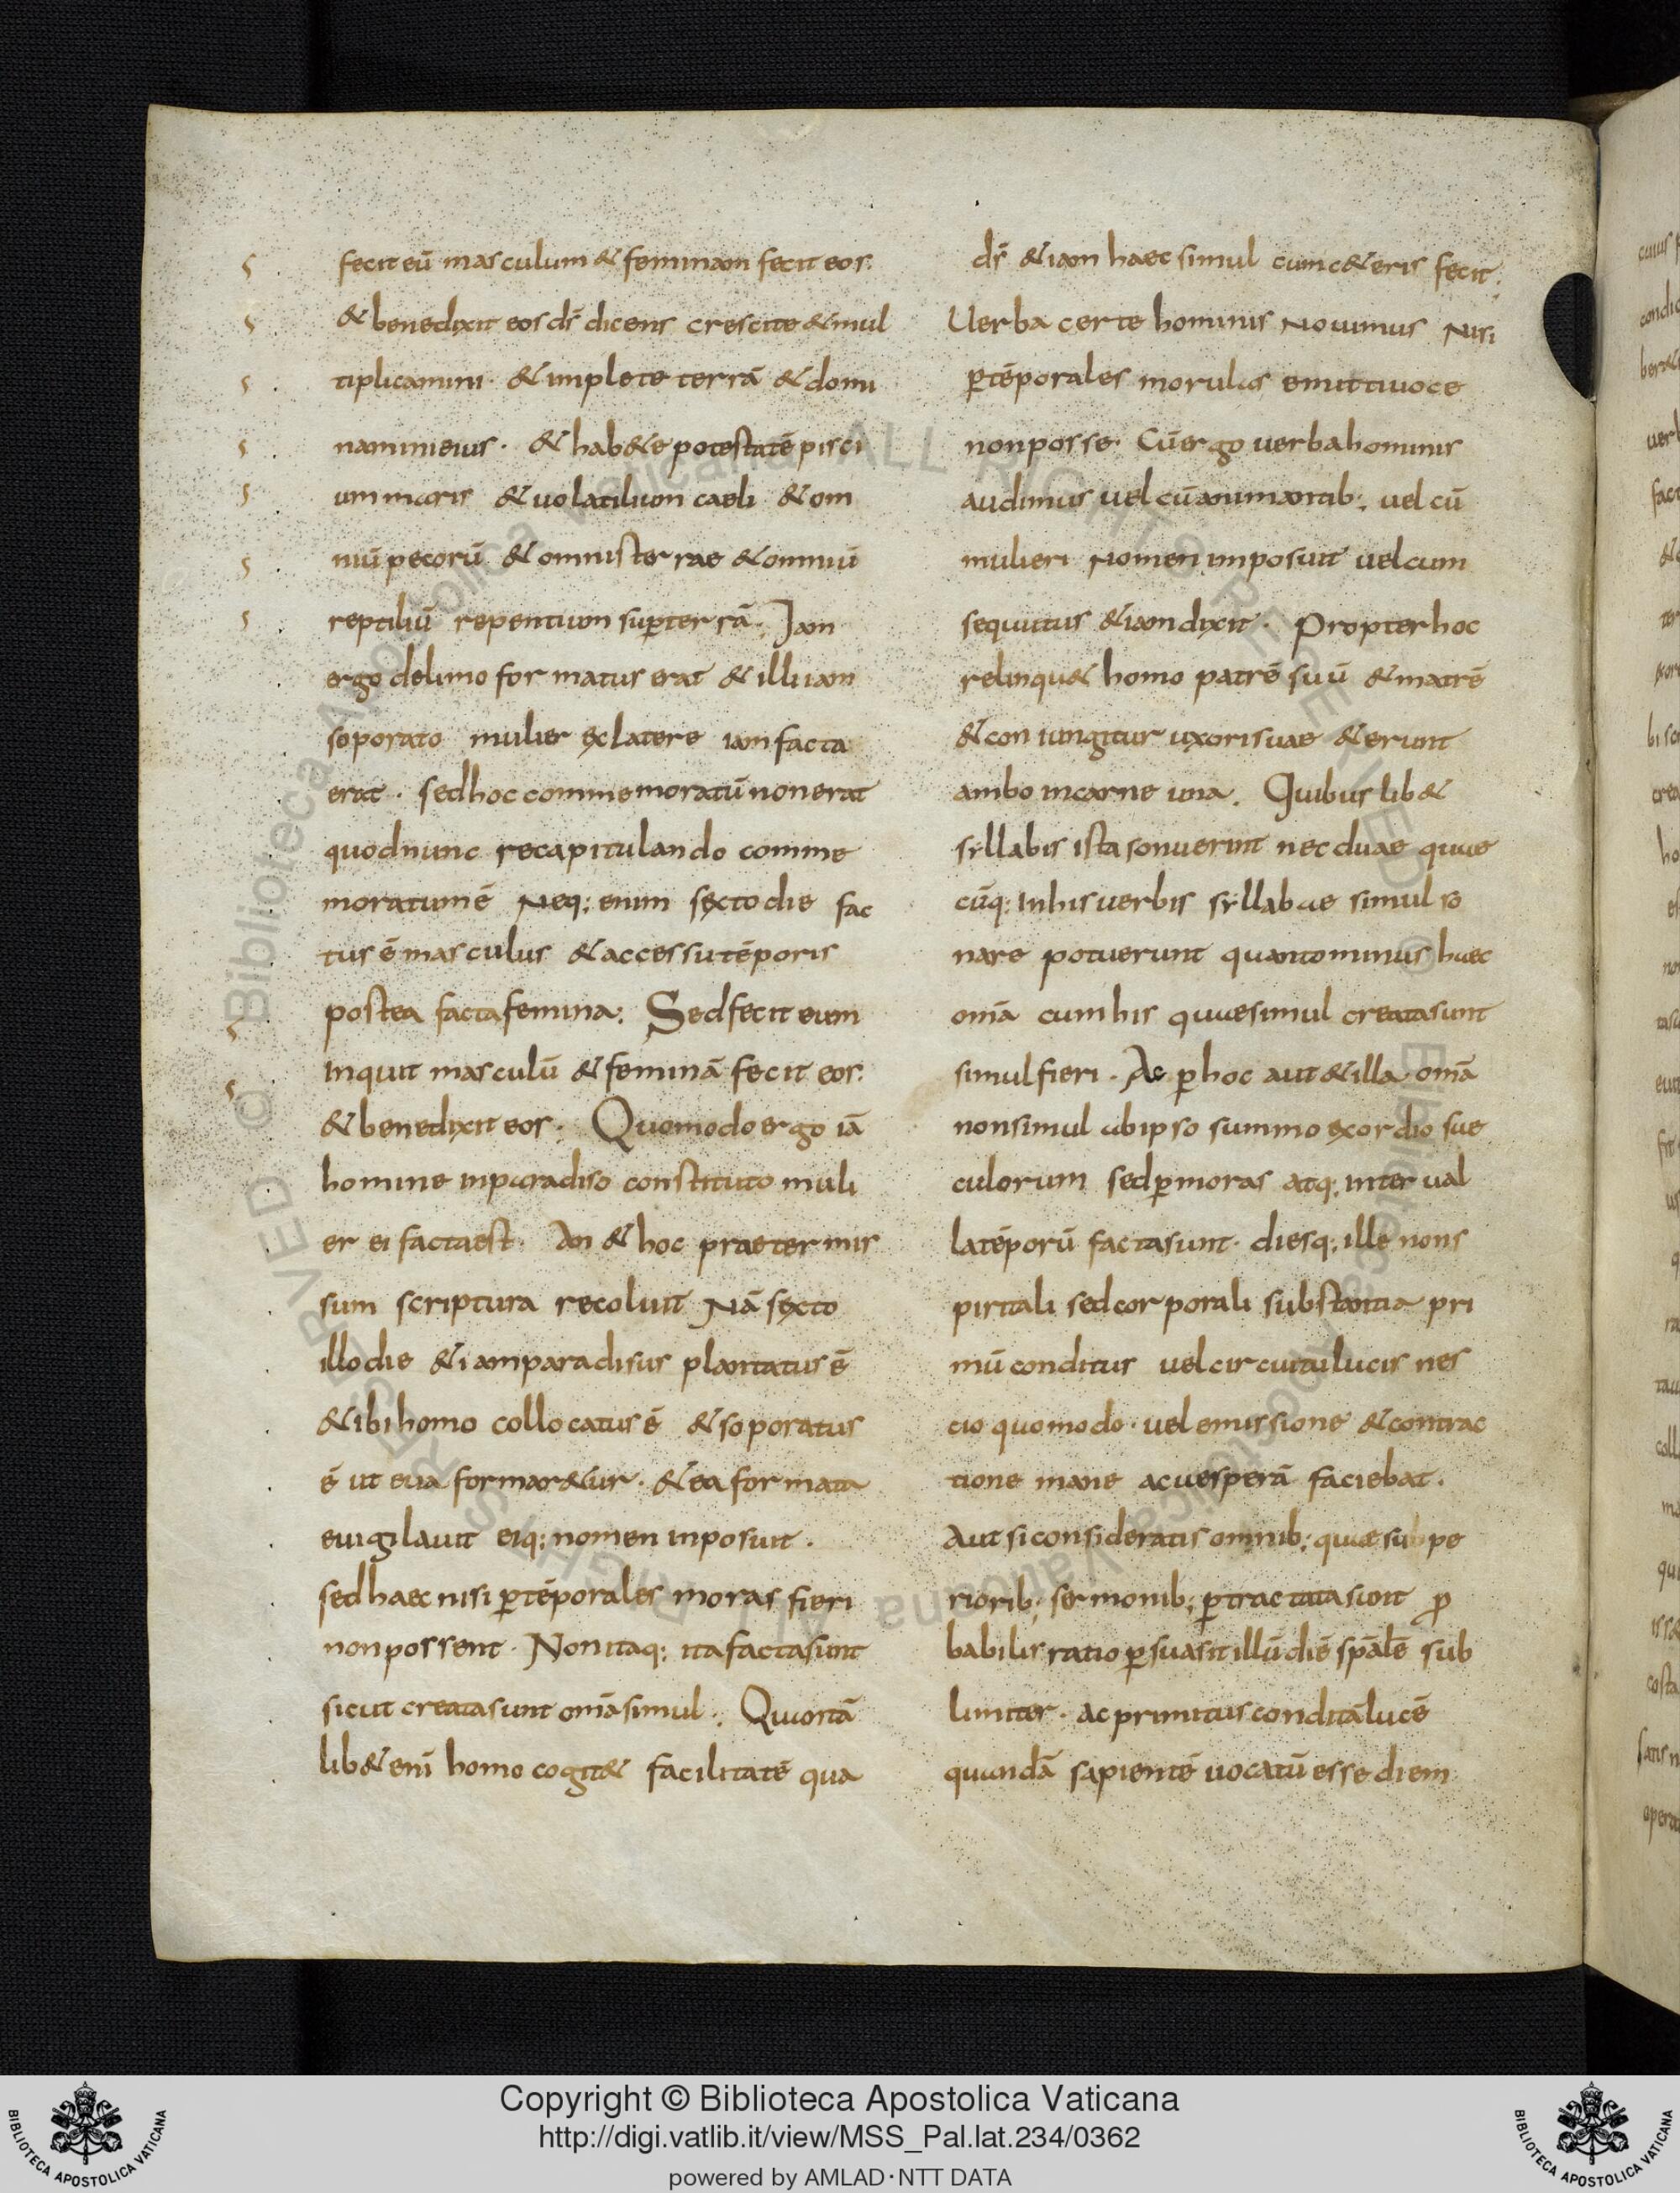 fecit eū masculum & feminam fecit eos.
& benedixit eos d̄s dicens crescite & mul
tiplicamini · & implete terrā & domi
namini eius · & hab&e potestatē pisci
um maris & uolatilium caeli & om
niū pecorū & omnis terrae & omniū
reptiliū repentium sup̱ terrā. Iam
ergo delimo formatus erat & illi iam
soporato mulier ex latere iam facta
erat · sed hoc commemoratū non erat
quod nunc recapitulando comme
moratum ē Neq; enim sexto die fac
tus ē masculus & accessu tēporis
postea facta femina. Sed fecit eum
inquit masculū & feminā fecit eos.
& benedixit eos · Quomodo ergo iā
homine in paradiso constituto muli
er ei facta est · An & hoc praetermis
sum scriptura recoluit Nā sexto
illo die & iam paradisus plantatus ē
& ibi homo collocatus ē & soporatus
ē ut eua formar&ur · & ea formata
euigilauit eiq; nomen inposuit ·
sed haec nisi p̱ tēporales moras fieri
non possent · Non itaq; ita facta sunt
sicut creata sunt om̄a simul. Quantā
lib& eni̅ homo cogit& facilitatē qua
d̄s & iam haec simul cum c&eris fecit.
Uerba certe hominis Nouimus Nisi
p̱ tēporales morulas emitti uoce
non posse · Cū ergo uerba hominis
audimus uel cū animantib; uel cū
mulieri Nomen imposuit uel cum
sequutus & iam dixit · Propter hoc
relinqu& homo patrē suū & matrē
& coniungitur uxori suae & erunt
ambo in carne una. Quibus lib&
syllabis ista sonuerint nec duae quae
cūq; In his uerbis syllabae simul so
nare potuerunt quanto minus haec
om̄a cum his quae simul creata sunt
simul fieri · Ac p̱ hoc aut & illa om̄a
non simul ab ipso summo exordio sae
culorum sed p̱ moras atq; interual
la tēporū facta sunt · diesq; ille non s
piritali sed corporali substantia pri
mū conditus uel circuitu lucis nes
cio quomodo · uel emissione & contrac
tione mane ac uesperā faciebat ·
Aut si consideratis omnib; quae supe
riorib; sermonib; p̱tractata sunt ꝓ
babilis ratio p̱suasit illū diē sp̄alē sub
limiter · ac primitus conditā lucē
quandā sapientē uocatū esse diem
Copyright © Biblioteca Apostolica Vaticana
http://digi.vatlib.it/view/MSS_Pal.lat.234/0362
powered by AMLAD·NTT DATA